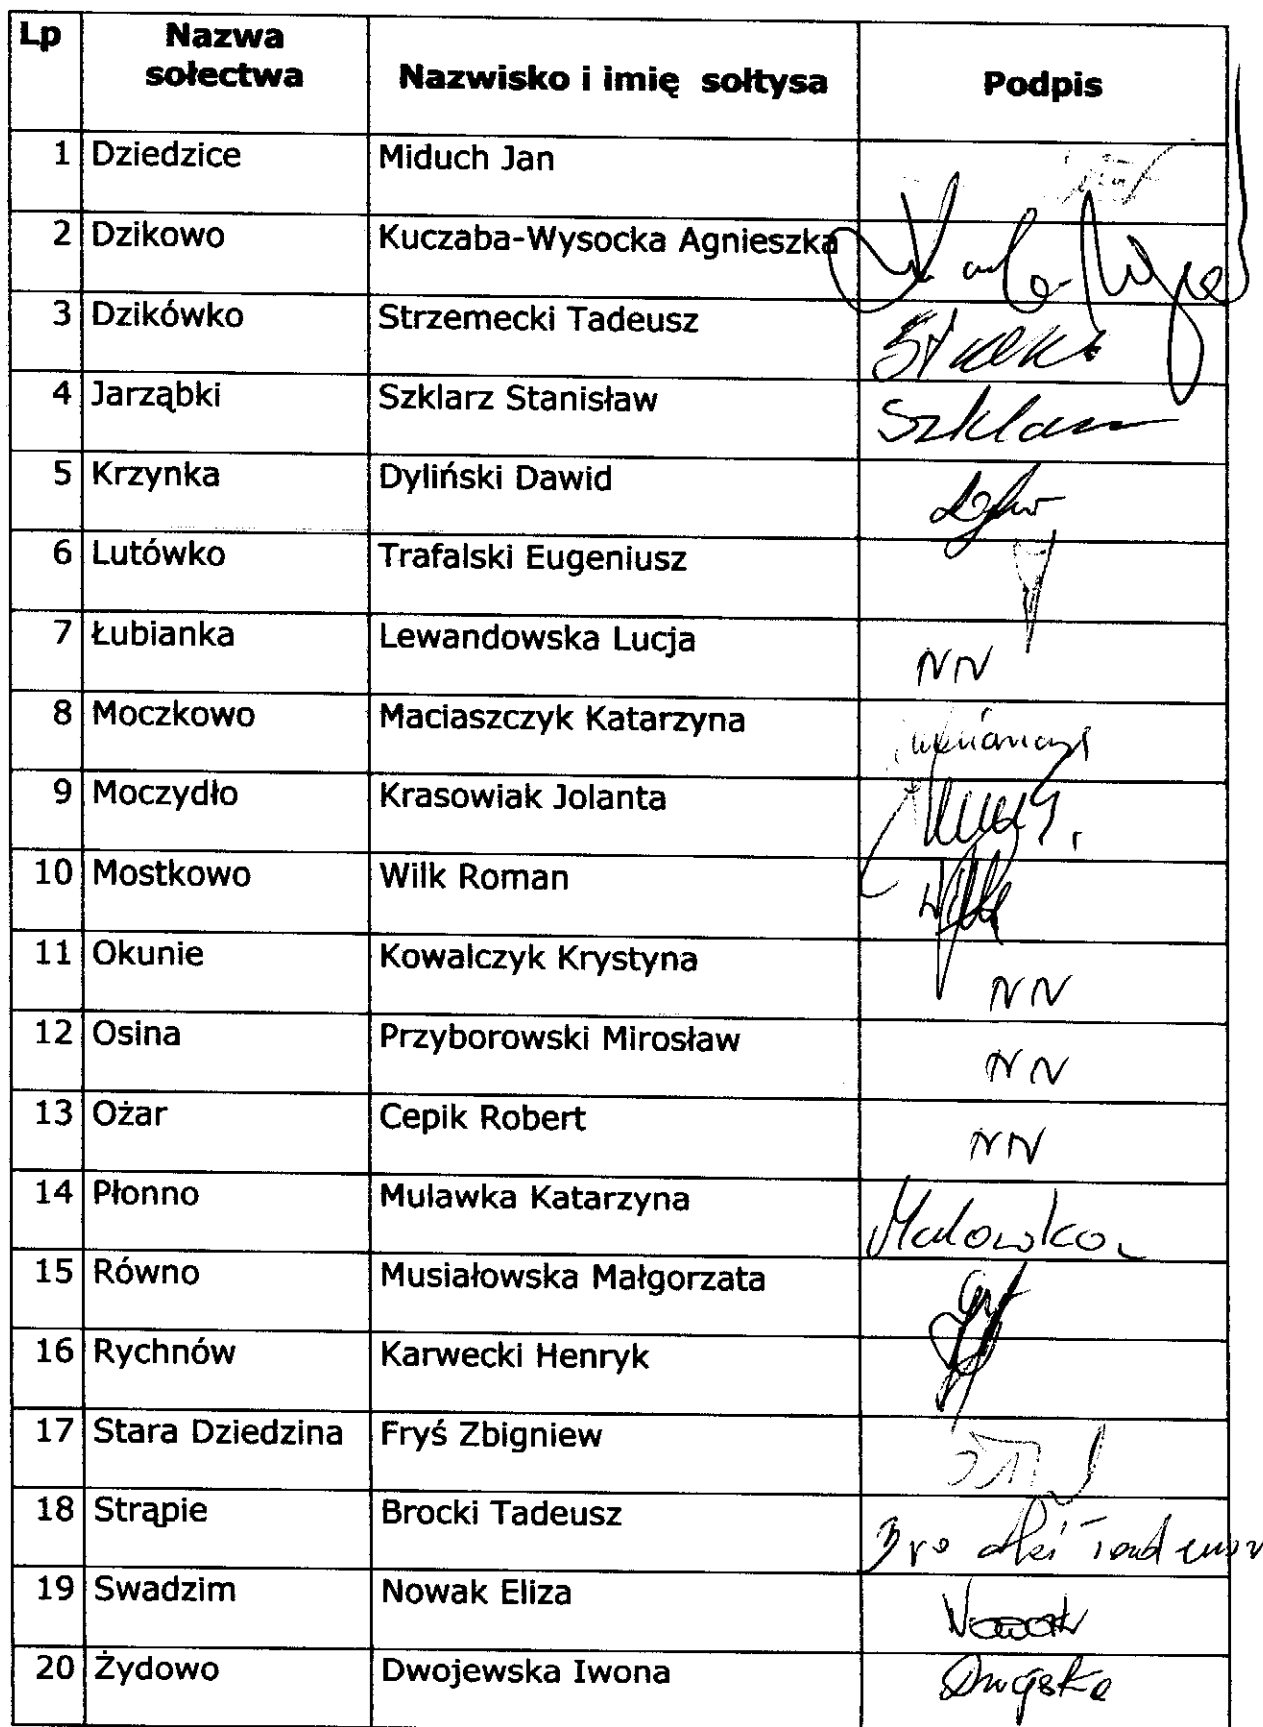 Lp Nazwa sołectwa Nazwisko i imię sołtysa Podpis
1 Dziedzice Miduch Jan
2 Dzikowo Kuczaba-Wysocka Agnieszka
3 Dzikówko Strzemecki Tadeusz
4 Jarząbki Szklarz Stanisław Szklarz
5 Krzynka Dyliński Dawid
6 Lutówko Trafalski Eugeniusz
7 Łubianka Lewandowska Lucja NN
8 Moczkowo Maciaszczyk Katarzyna
9 Moczydło Krasowiak Jolanta
10 Mostkowo Wilk Roman
11 Okunie Kowalczyk Krystyna NN
12 Osina Przyborowski Mirosław NN
13 Ożar Cepik Robert NN
14 Płonno Mulawka Katarzyna Mulawka
15 Równo Musiałowska Małgorzata
16 Rychnów Karwecki Henryk
17 Stara Dziedzina Fryś Zbigniew
18 Strąpie Brocki Tadeusz Brocki Tadeusz
19 Swadzim Nowak Eliza Nowak
20 Żydowo Dwojewska Iwona